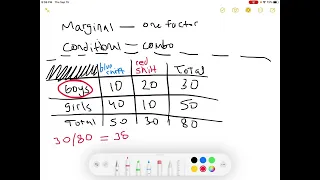 Marginal — one factor
Conditional — combo
blue shirt red shirt Total
boys 10 20 30
girls 40 10 50
Total 50 30 80
30/80 = 38